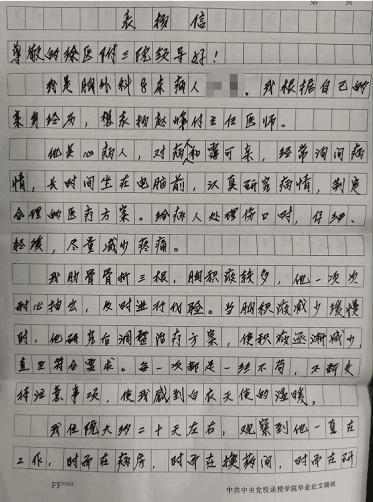 第 页
表扬信
尊敬的徐医附三院领导好！
我是胸外科8床病人 。我根据自己的
亲身经历，想表扬赵峰付主任医师。
他关心病人，对病人和蔼可亲，经常询问病
情，长时间坐在电脑前，认真研究病情，制定
合理的医疗方案。给病人处理伤口时，仔细、
轻缓，尽量减少疼痛。
我肋骨骨折三根，胸积液较多，他一次次
耐心抽出，及时进行化验。当胸积液减少缓慢
时，他研究后调整治疗方案，使积液逐渐减少
直至符合要求。每一次都是一丝不苟，不断交
待注意事项，使我感到白衣天使的温暖。
我住院大约二十天左右，观察到他一直在
工作，时而在病房，时而在换药间，时而在研
中共中央党校函授学院毕业论文稿纸